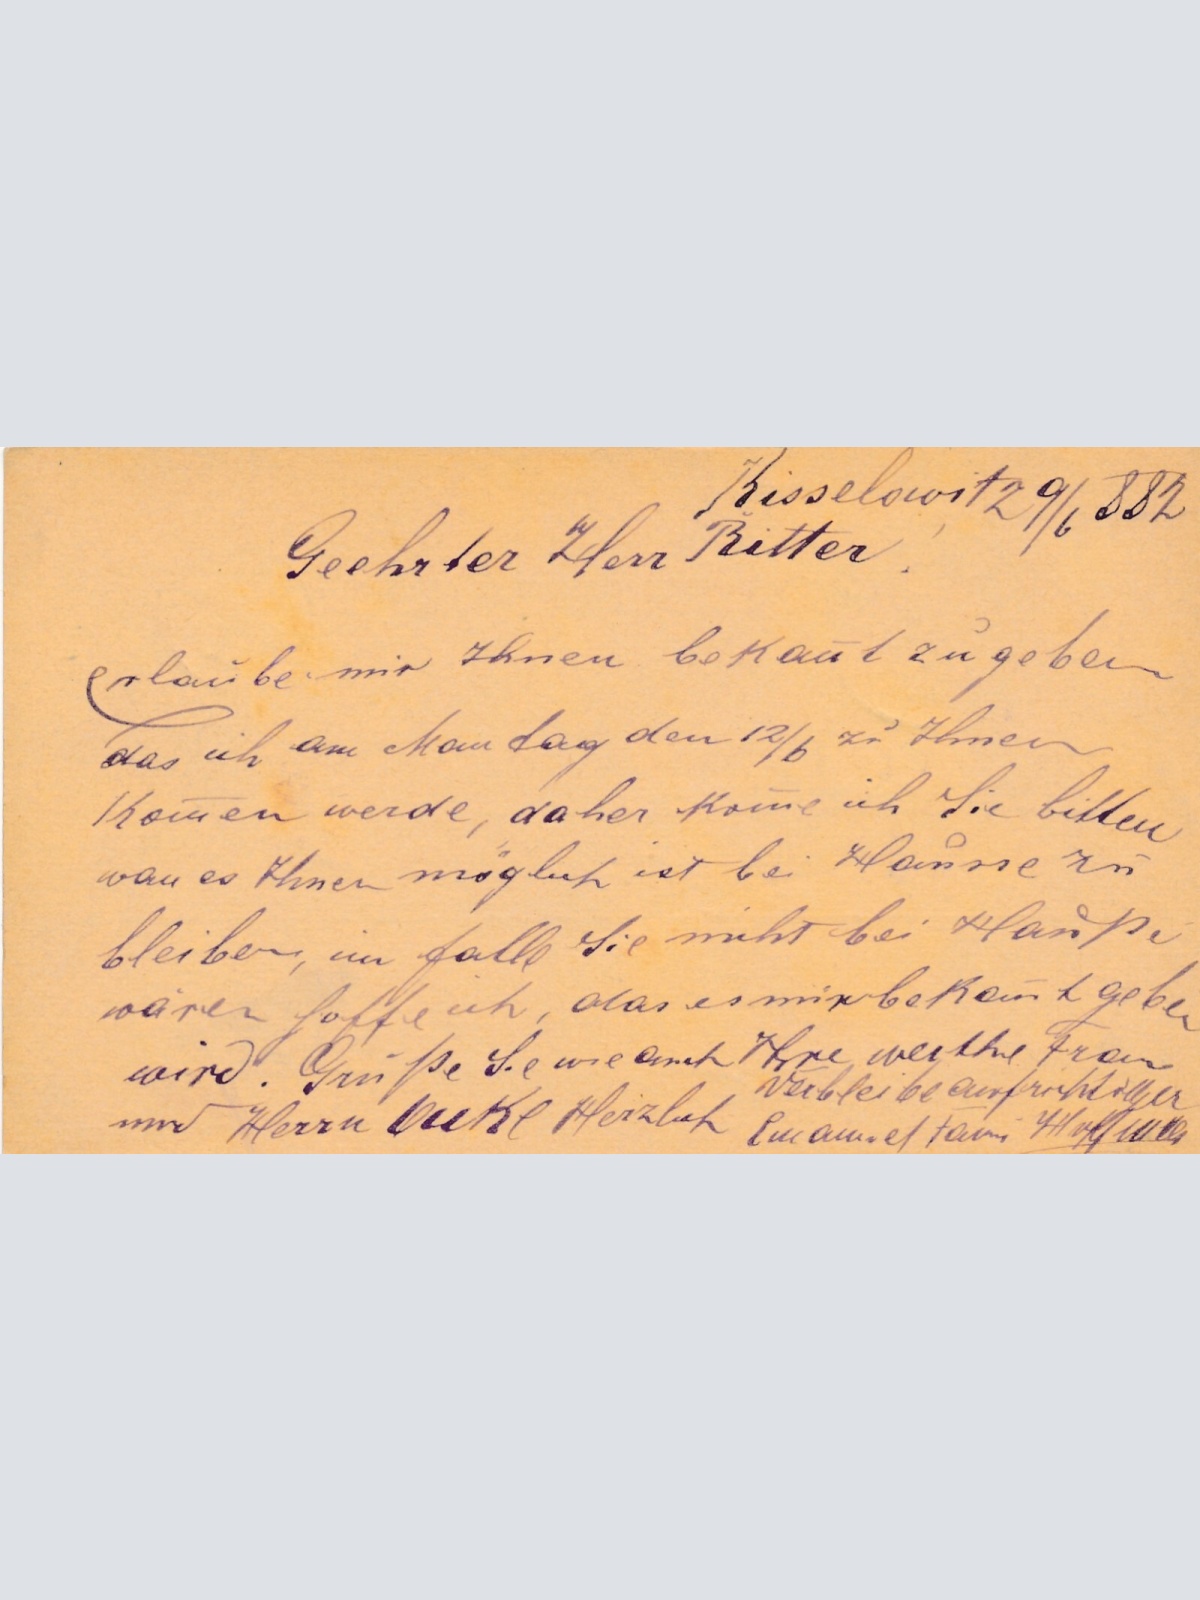 Kisselowitz 9/6 882
Geehrter Herr Ritter!
erlaube mir Ihnen bekan̄t zu geben
das ich am Mantag den 12/6 zu Ihnen
Kom̄en werde, daher kom̄e ich Sie bitten
wan es Ihnen möglich ist bei Hausse zu
bleiben, im falle Sie nicht bei Hauße
wären hoffe ich, das es mir bekan̄t geben
wird. Grüße Sie wie auch Ihre werthe Frau
und Herrn Onkel Herzlich
Verbleibe aufrichtiger
Emanuel